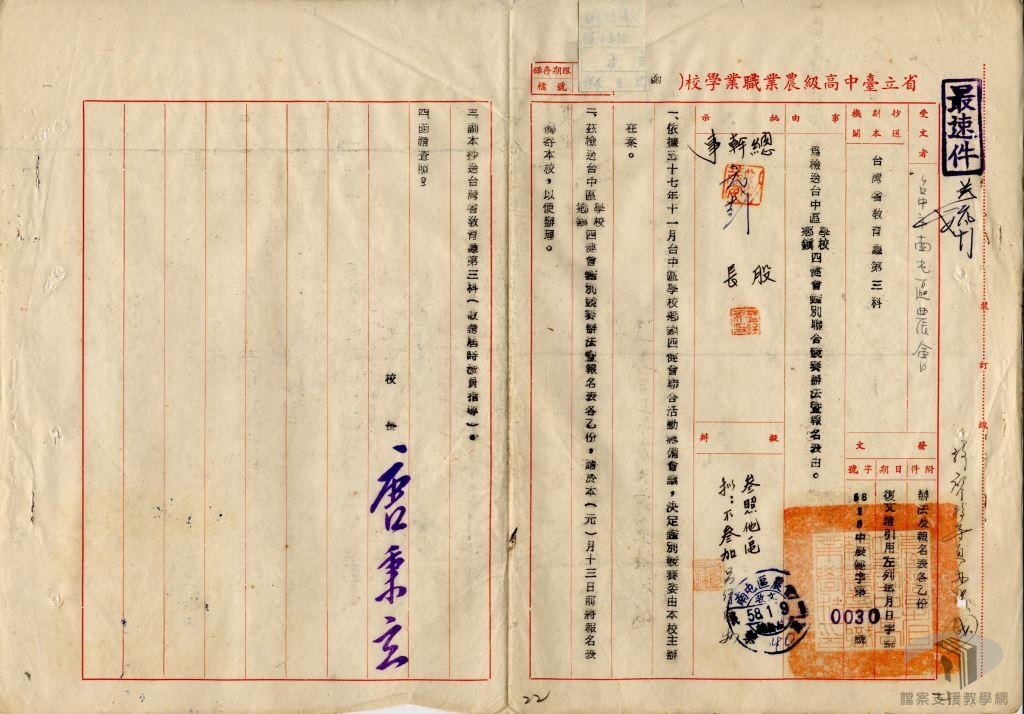 省立臺中高級農業職業學校(函)
保存期限
檔號
最速件
受文者
台中市南屯區農會
抄送副本機關
台灣省教育廳第三科
事由
為檢送台中區學校鄉鎮四健會鑑別聯合競賽辦法暨報名表由。
批示
總幹事
股長
擬辦
參照他區
擬：不參加
發文
附件
日期
字號
辦法及報名表各乙份
復文請引用左列年月日字號
58 1 8 中農健字第 0030 號
一、依據五十七年十一月台中區學校鄉鎮四健會聯合活動籌備會議，決定鑑別競賽委由本校主辦
在案。
二、茲檢送台中區學校鄉鎮四健會鑑別競賽辦法暨報名表各乙份，請於本（元）月十三日前將報名表
寄本校，以便辦理。
三、副本抄送台灣省教育廳第三科（敬請屆時派員指導）。
四、函請查照。
校長
唐秉玄
58.1.9
裝訂線
22
檔案支援教學網